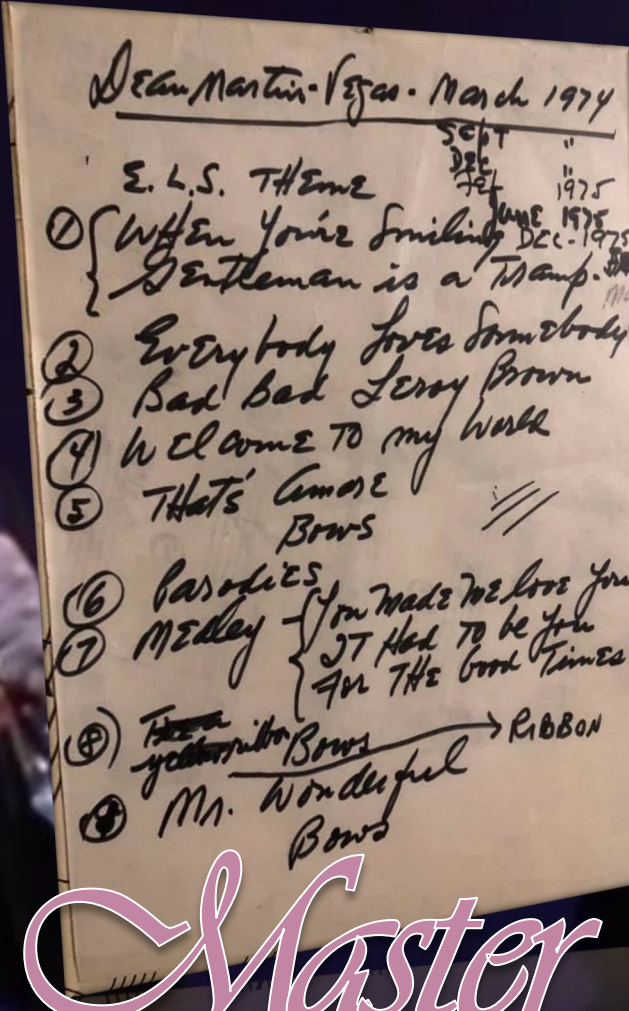 Dean Martin - Vegas - March 1974
SEPT "
DEC "
Feb 1975
E. L. S. THEME
JUNE 1975
① WHEN You're Smiling DEC - 1975
Gentleman is a Tramp.
② Everybody Loves Somebody
③ Bad Bad Leroy Brown
④ Welcome To my World
⑤ THAT'S Amore
Bows
⑥ Parodies
⑦ Medley - You MADE ME love You
IT HAD TO be You
For THE Good Times
⑧ Tie a
yellow ribbon Bows → RIBBON
⑨ Mr. Wonderful
Bows
Master